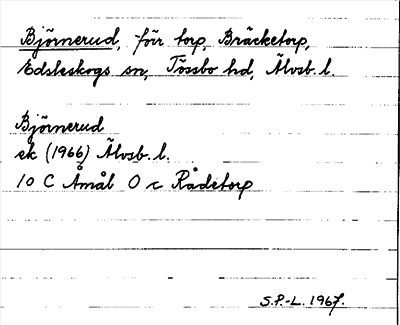 Björnerud, förr torp, Bräcketorp,
Edsleskogs sn, Tössbo hd, Älvsb. l.
Björnerud
ek (1966) Älvsb. l.
10 C Åmål O c Rådetorp
S.P.-L. 1967.